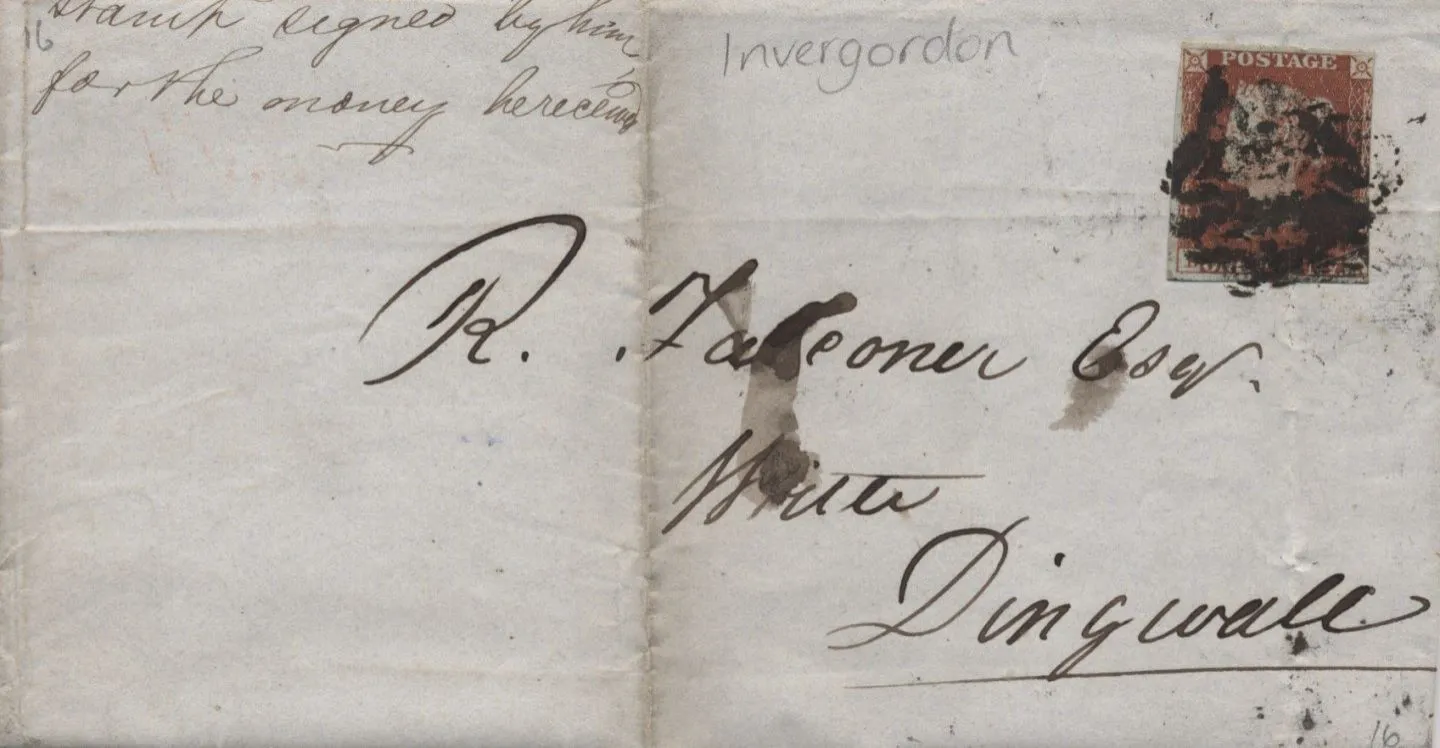 stamp signed by him
for the money he received
16
Invergordon
POSTAGE
R. Falconer Esqr.
Writer
Dingwall
16